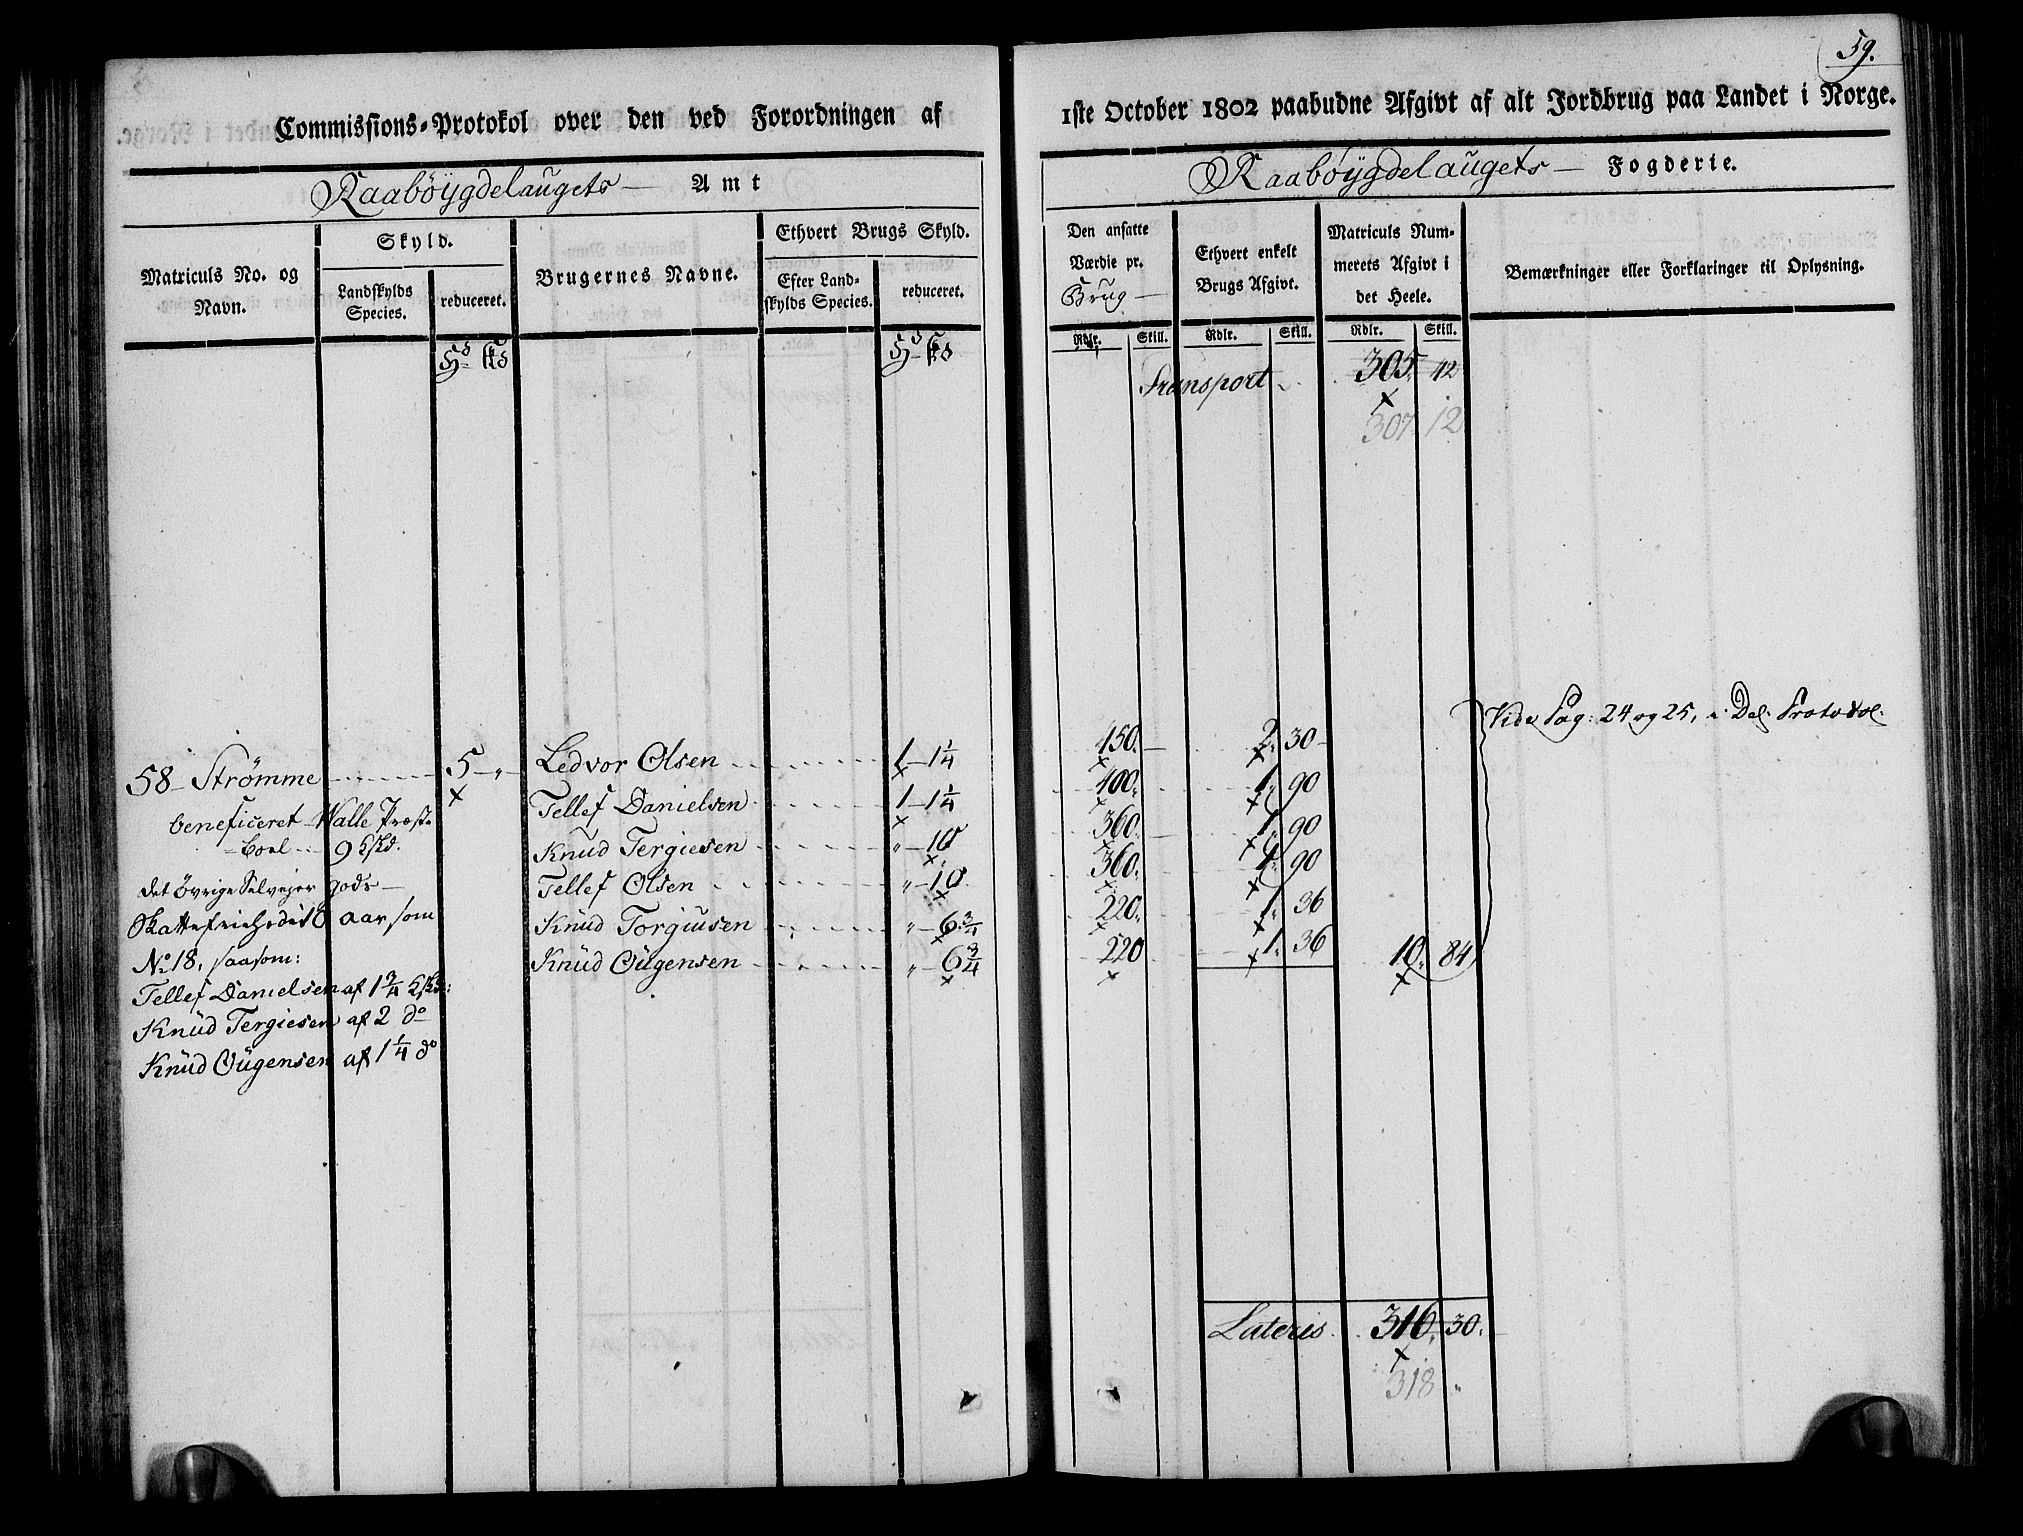 59.
Commissions-Protokol over den ved Forordningen af
1ste October 1802 paabudne Afgivt af alt Jordbrug paa Landet i Norge.
Raabøygdelaugets — Amt
Raabøygdelaugets — Fogderie.
Matriculs No. og Navn.
Skyld.
Landskylds Species.
reduceret.
Brugernes Navne.
Ethvert Brugs Skyld.
Efter Landskylds Species.
reduceret.
Den ansatte Værdie pr. Brug —
Ethvert enkelt Brugs Afgivt.
Matriculs Nummerets Afgivt i det Heele.
Bemærkninger eller Forklaringer til Oplysning.
Rdlr. Skill. Rdlr. Skill. Rdlr. Skill.
Transport 305. 12
307 12
Vide Pag: 24 og 25, i Del. Protokol.
58 Strømme 5 – „ Ledvor Olsen 1 – 1 1/4 150. 2. 30
Tellef Danielsen 1 – 1 1/4 400. 1. 90
beneficeret Walle Præste
Knud Tergiesen „ – 10 360. 1. 90
boel 9
Tellef Olsen „ – 10 360. 1. 90
det øvrige Selvejer gods
Knud Torgiusen „ – 6 3/4 220. 1. 36
aar, som
Knud Ougensen „ – 6 3/4 220 1. 36 10. 84
No 18, saasom:
Tellef Danielsen af 1 3/4
Knud Tergiesen af 2 do
Knud Ougensen af 1 1/4 do
Lateris 316. 30.
318 „